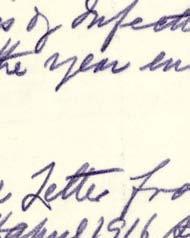 s of Infect
the year en
Letter fro
April 1916